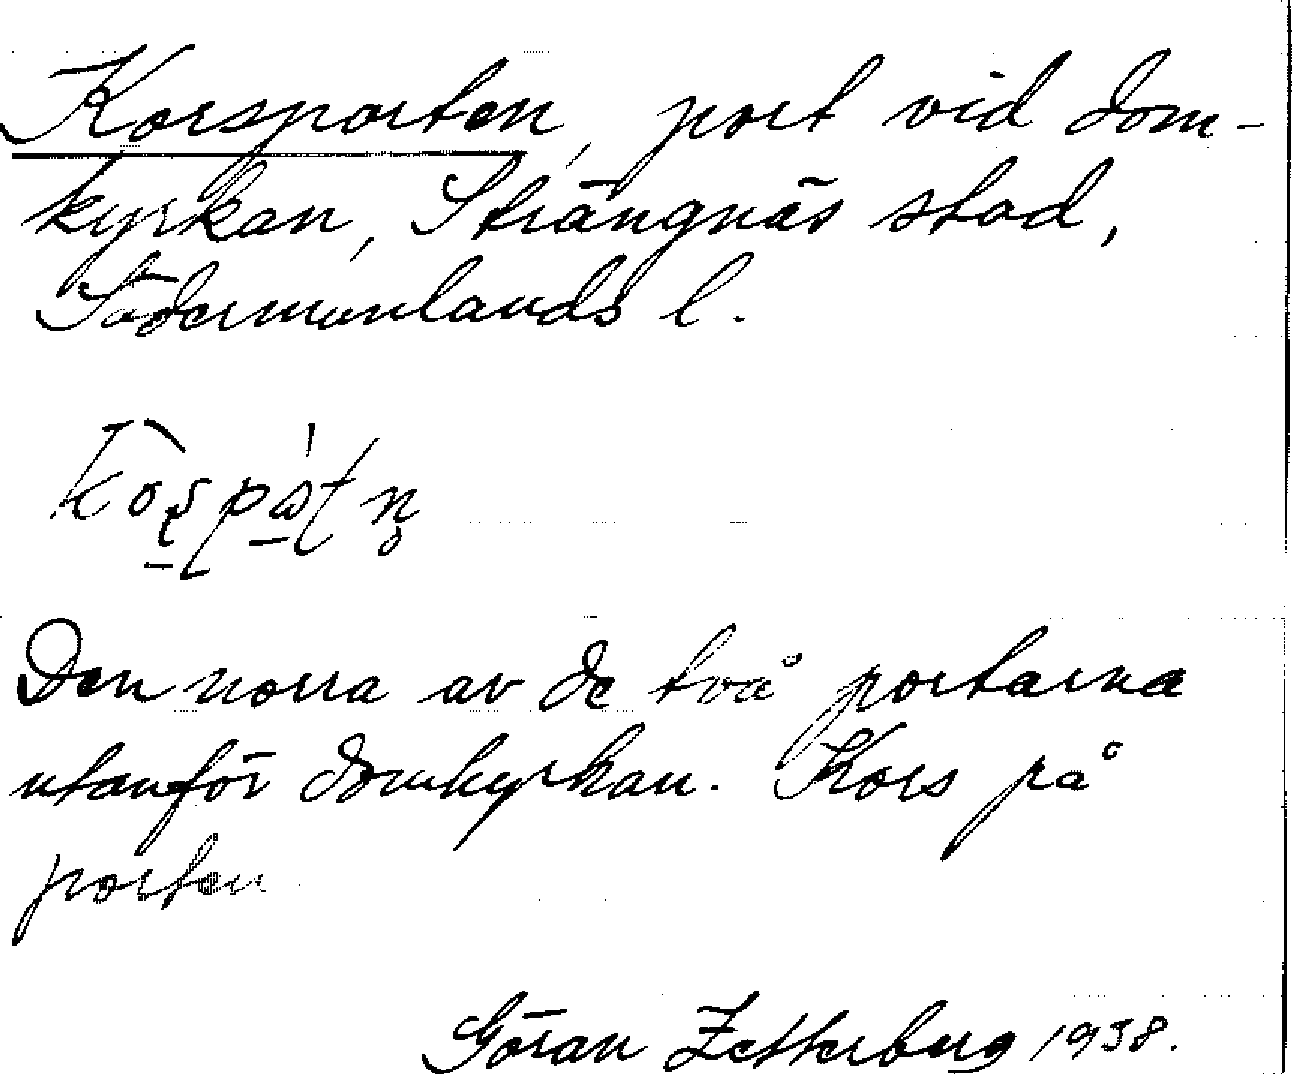 Korsporten, port vid dom-
kyrkan, Strängnäs stad,
Södermanlands l.
Den norra av de två portarna
utanför domkyrkan. Kors på
porten
Göran Zetterberg 1938.